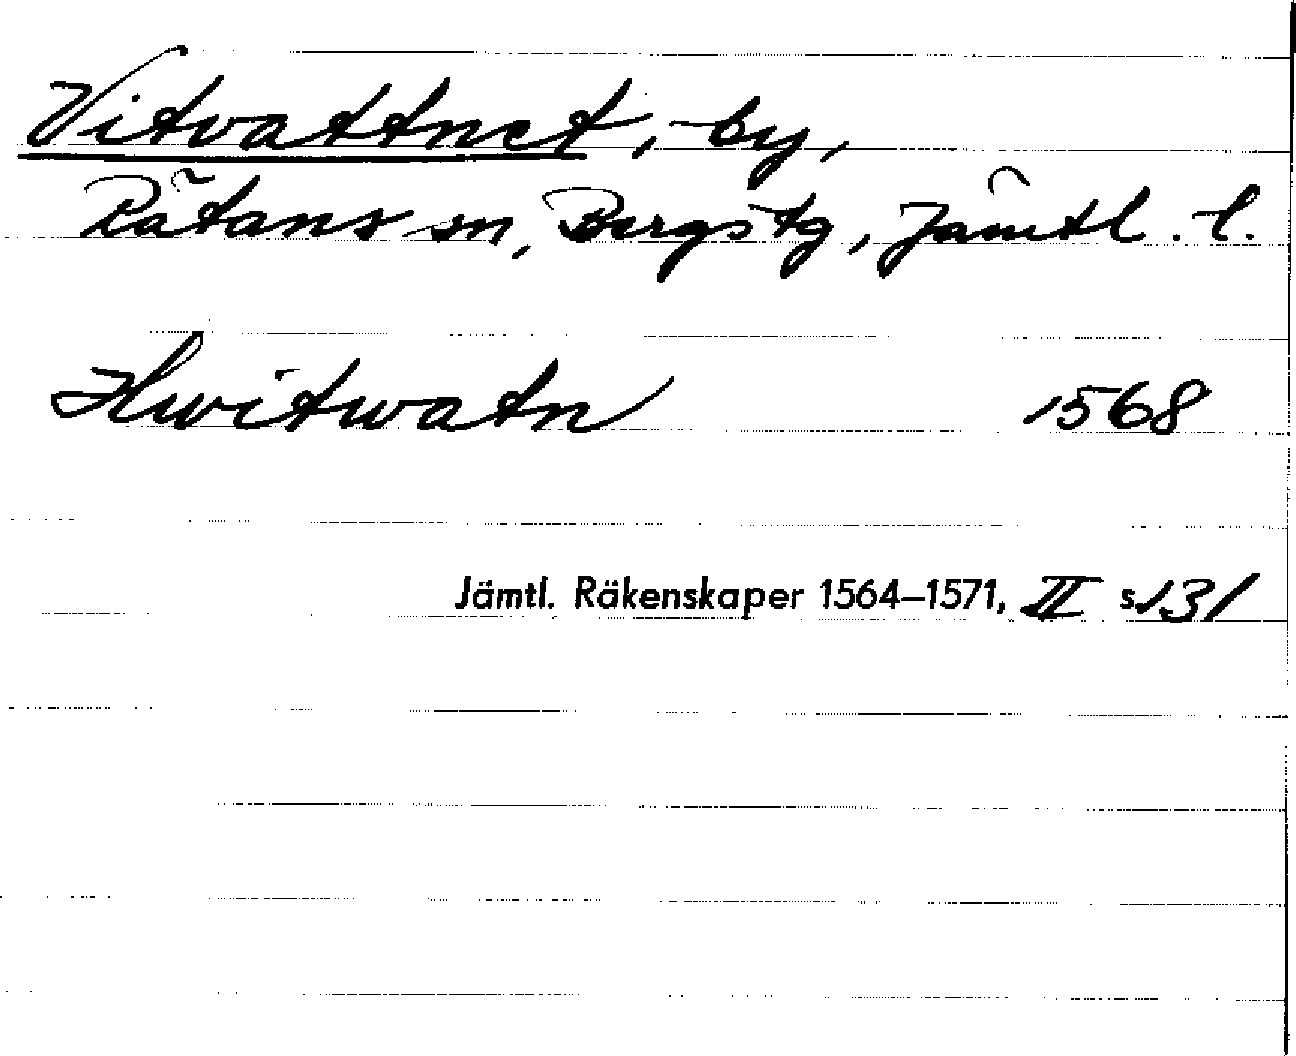 Vitvattnet, by,
Rätans sn, Bergs tg, Jämtl. l.
Hwitwatn 1568
Jämtl. Räkenskaper 1564–1571, II s. 131